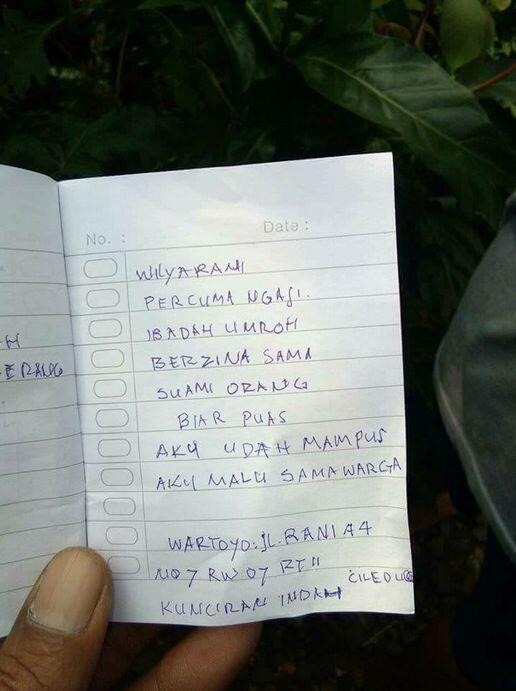 No. :
Date :
WILYARANI
PERCUMA NGAJI.
IBADAH UMROH
BERZINA SAMA
SUAMI ORANG
BIAR PUAS
AKU UDAH MAMPUS
AKU MALU SAMA WARGA
WARTOYO: JL. RANI A4
NO 7 RW 07 RT 11
CILEDUG
KUNCIRAN INDAH
H
ERANG